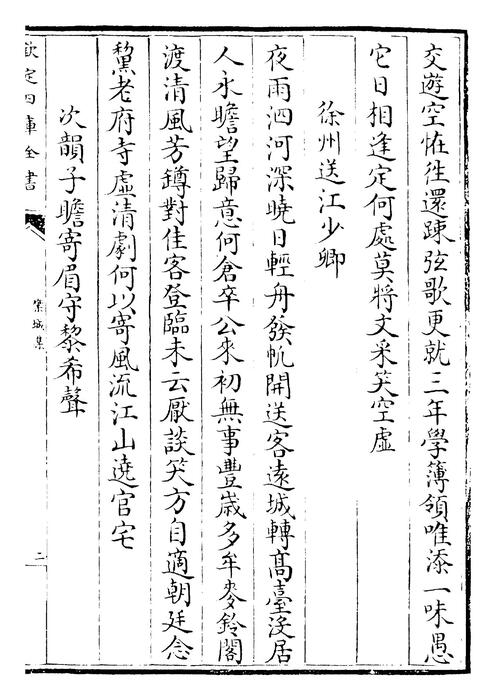 交遊空恠徃還踈弦歌更就三年學簿領唯添一味愚
它日相逢定何處莫將文采笑空虛
徐州送江少卿
夜雨泗河深曉日輕舟發帆開送客遠城轉髙臺沒居
人永瞻望歸意何倉卒公來初無事豐歲多牟麥鈴閣
渡清風芳罇對佳客登臨未云厭談笑方自適朝廷念
黧老府寺虛清劇何以寄風流江山遶官宅
次韻子瞻寄眉守黎希聲
欽定四庫全書
欒城集
二